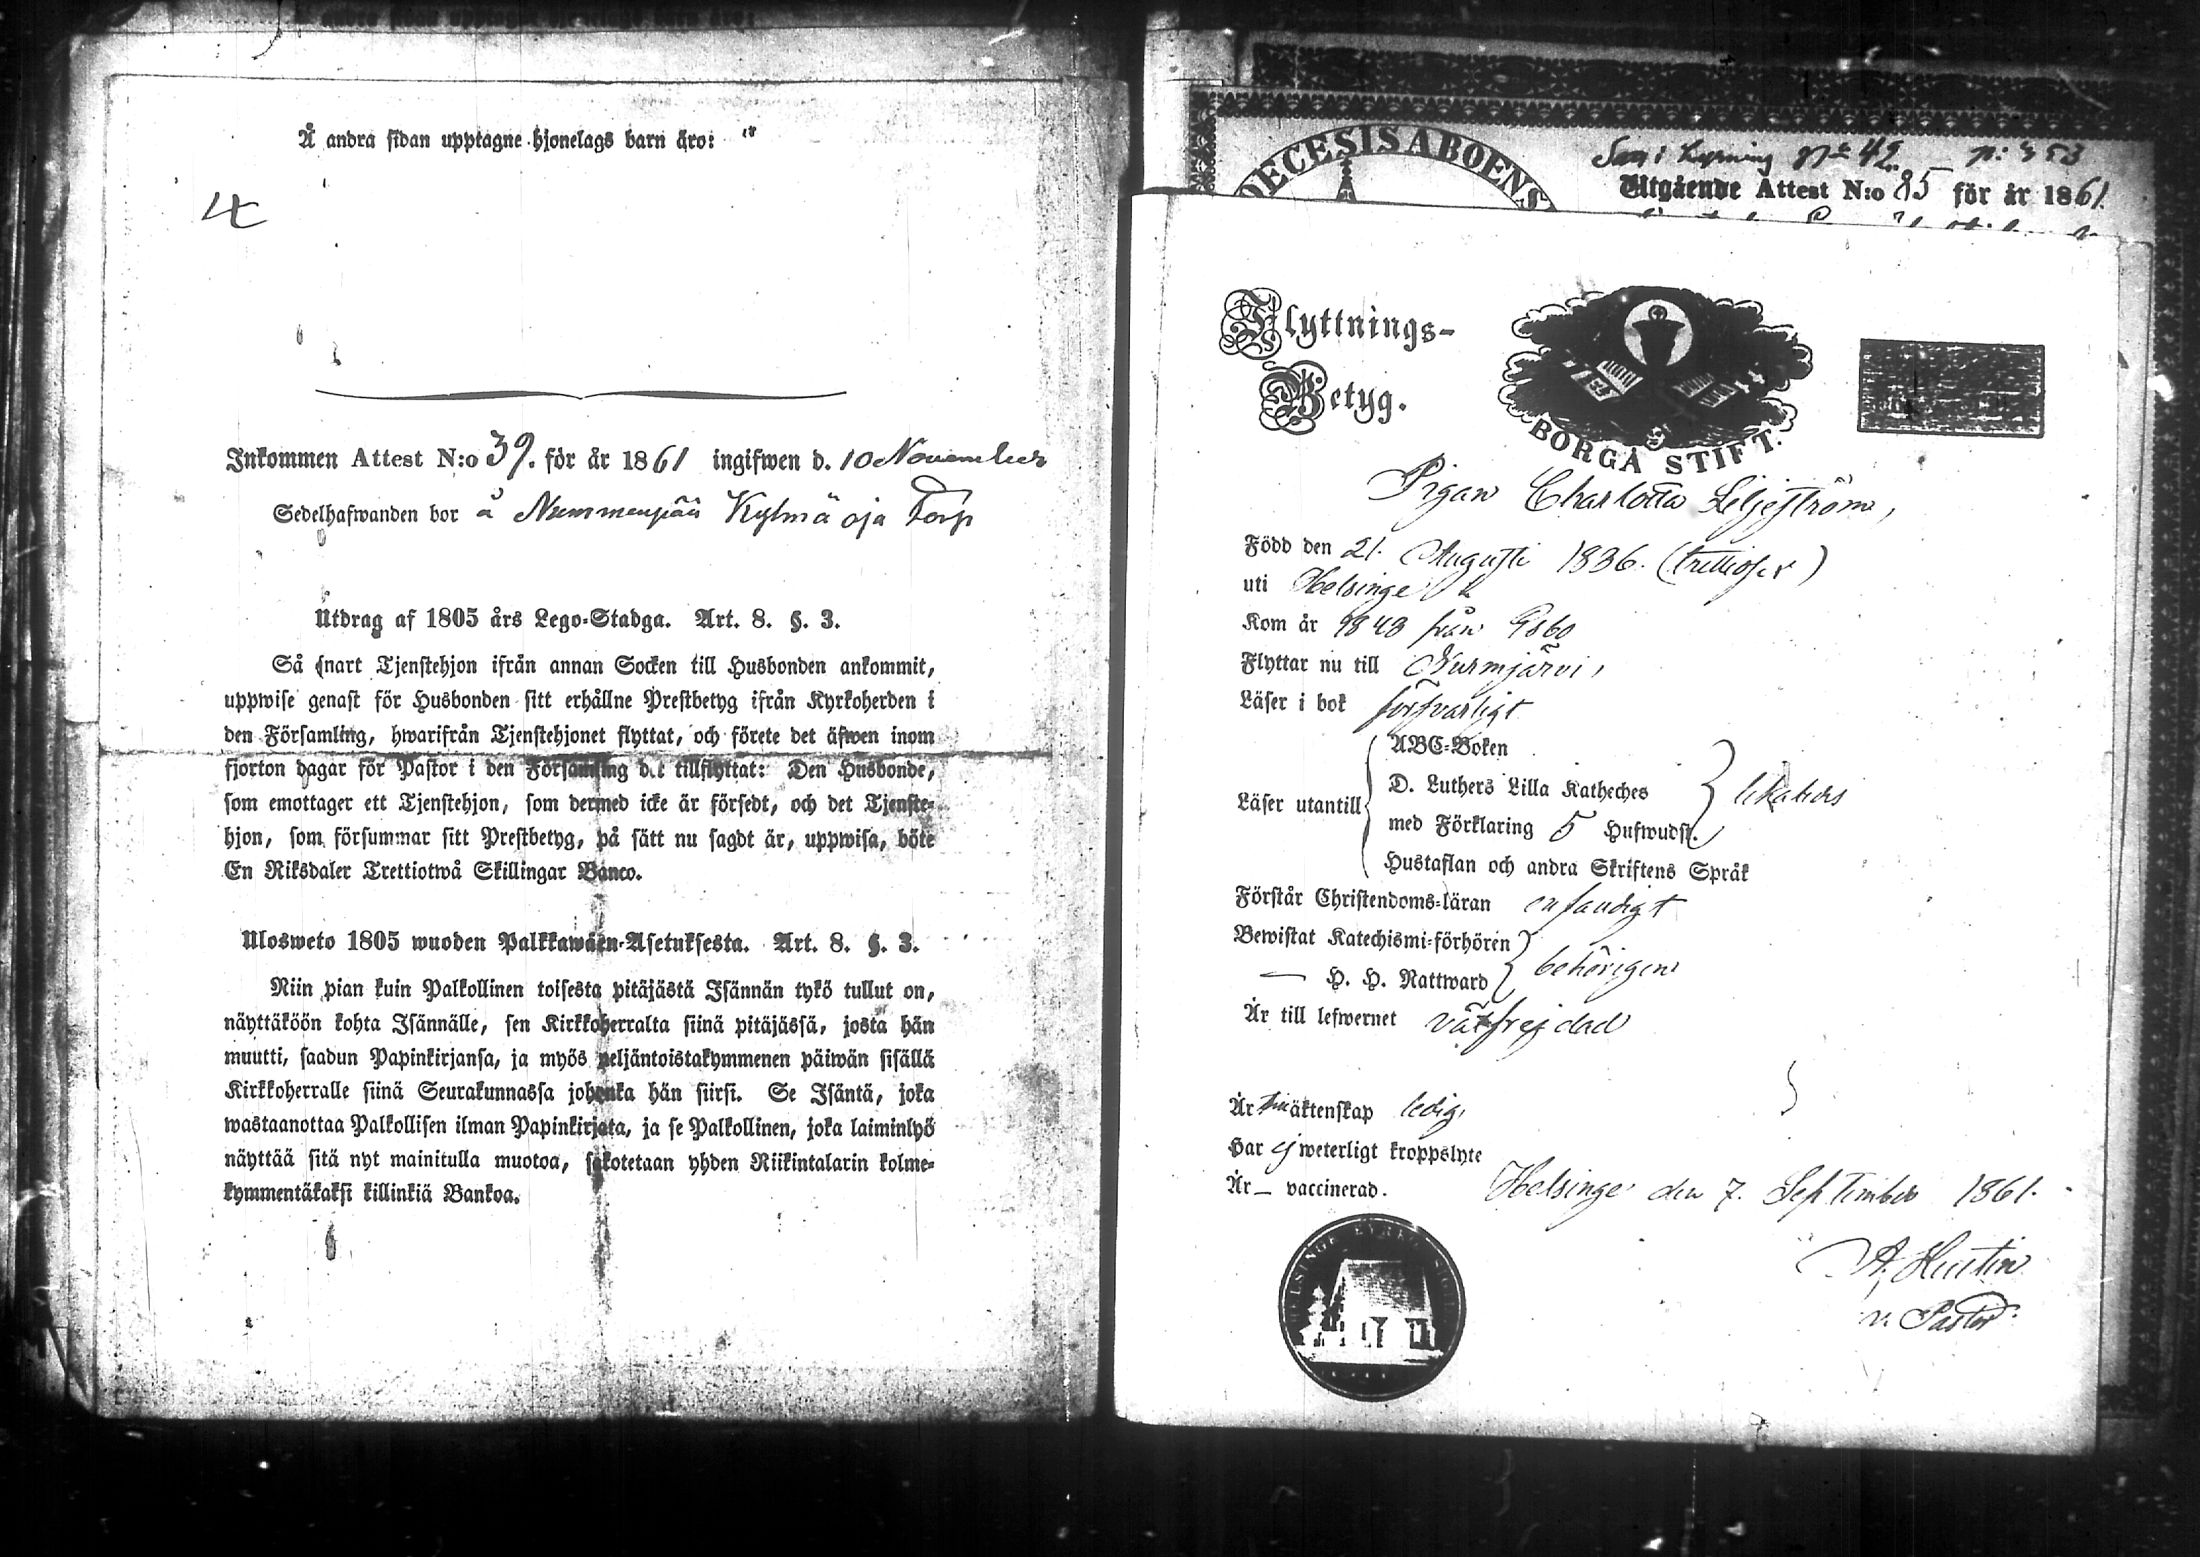 Å andra sidan upptagne hjonelags barn äro:
Inkommen Attest N:o 39. för år 1861 ingifwen d. 10 November
Sedelhafwanden bor å Nummenpää Kylmäoja Torp
Utdrag af 1805 års Lego-Stadga. Art. 8. §. 3.
Så snart Tjenstehjon ifrån annan Socken till Husbonden ankommit,
uppwise genast för Husbonden sitt erhållne Prestbetyg ifrån Kyrkoherden i
den Församling, hwarifrån Tjenstehjonet flyttat, och förete det äfwen inom
fjorton dagar för Pastor i den Församling det tillflyttat: Den Husbonde,
som emottager ett Tjenstehjon, som dermed icke är försedt, och det Tjenste-
hjon, som försummar sitt Prestbetyg, på sätt nu sagdt är, uppwisa, böte
En Riksdaler Trettiotwå Skillingar Banco.
Ulosweto 1805 wuoden Palkkawäen-Asetuksesta. Art. 8. §. 3.
Niin pian kuin Palkollinen toisesta pitäjästä Isännän tykö tullut on,
näyttäköön kohta Isännälle, sen Kirkkoherralta siinä pitäjässä, josta hän
muutti, saadun Papinkirjansa, ja myös neljäntoistakymmenen päiwän sisällä
Kirkkoherralle siinä Seurakunnassa johonka hän siirsi. Se Isäntä, joka
wastaanottaa Palkollisen ilman Papinkirjata, ja se Palkollinen, joka laiminlyö
näyttää sitä nyt mainitulla muotoa, sakotetaan yhden Riikintalarin kolme-
kymmentäkaksi killinkiä Bankoa.
DECESIS ABOENS
N:o 42
Utgående Attest N:o 85 för år 1861.
Flyttnings-
Betyg.
BORGÅ STIFT.
Pigan Charlotta Liljeström,
Född den 21. Augusti 1836. (trettiosex)
uti Helsinge
Kom år 1848 från
Flyttar nu till Nurmjärvi,
Läser i bok försvarligt
ABC-Boken
Läser utantill D. Luthers Lilla Katheches likaledes
med Förklaring 5 Hufwudst.
Hustaflan och andra Skriftens Språk
Förstår Christendoms-läran enfaldigt
Bewistat Katechismi-förhören behörigen
— H. H. Nattward
Är till lefwernet välfrejdad
Är till äktenskap ledig,
Har ej weterligt kroppslyte
Är — vaccinerad.
Helsinge den 7. September 1861.
A. Hustin
v. Pastor